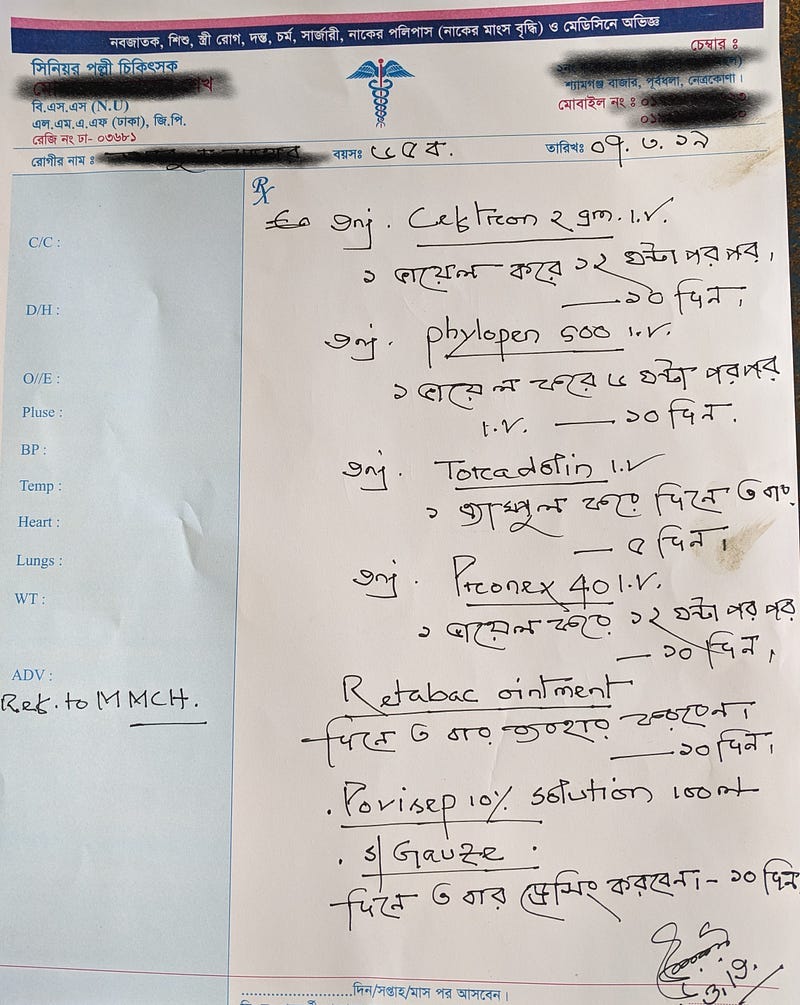 নবজাতক, শিশু, স্ত্রী রোগ, দন্ত, চর্ম, সার্জারী, নাকের পলিপাস (নাকের মাংস বৃদ্ধি) ও মেডিসিনে অভিজ্ঞ
সিনিয়র পল্লী চিকিৎসক
বি.এস.এস (N.U)
এল.এম.এ.এফ (ঢাকা), জি.পি.
রেজি নং ঢা- ০৩৬৮১
চেম্বার ঃ
শ্যামগঞ্জ বাজার, পূর্বধলা, নেত্রকোণা।
মোবাইল নং ঃ
রোগীর নাম ঃ
বয়সঃ ৬৫ ব.
তারিখঃ ০৭. ৩. ১৯
C/C :
D/H :
O//E :
Pluse :
BP :
Temp :
Heart :
Lungs :
WT :
ADV :
Ref. to MMCH.
Rx
Inj. Ceftron ২ gm. I.V.
১ ভায়েল করে ১২ ঘন্টা পর পর।
— ১০ দিন।
Inj. Phylopen 500 I.V.
১ ভায়েল করে ৬ ঘন্টা পর পর
I.V. — ১০ দিন.
Inj. Torcadolin I.V
১ এ্যাম্পুল করে দিনে ৩ বার.
— ৫ দিন।
Inj. Pronex 40 I.V.
১ ভায়েল করে ১২ ঘন্টা পর পর
— ১০ দিন।
Retabac ointment
দিনে ৩ বার ব্যবহার করবেন।
— ১০ দিন।
. Povisep 10% solution 100ml
. S/ Gauze .
দিনে ৩ বার ড্রেসিং করবেন। – ১০ দিন
দিন/সপ্তাহ/মাস পর আসবেন।